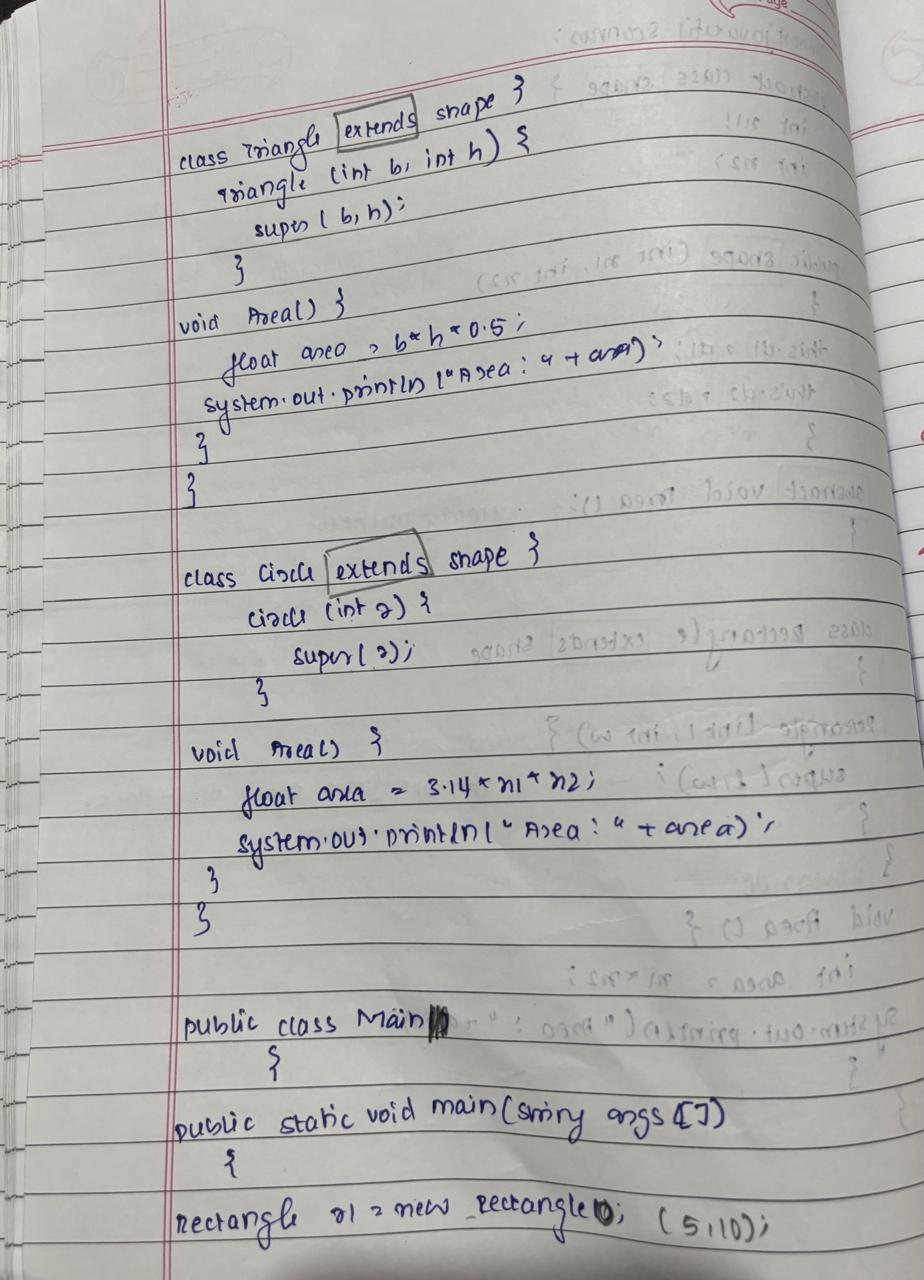 class Triangle extends shape }
Triangle (int b, int h) {
super (b, h);
}
void Area() }
float area = b * h * 0.5;
system.out.println ("Area: " + area);
}
}
class Circle extends shape }
circle (int r) {
super(r);
}
void Area() {
float area = 3.14 * n1 * n2;
system.out.println (" Area: " + area);
}
}
public class Main
{
public static void main (string args [])
{
rectangle r1 = new rectangle (); (5,10);